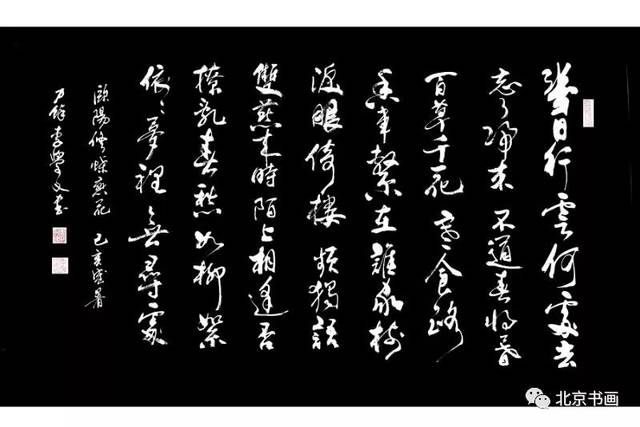 幾日行雲何處去
忘了歸来不道春將暮
百草千花寒食路
香車繫在誰家樹
淚眼倚樓頻獨語
雙燕来時陌上相逢否
撩亂春愁如柳絮
依依夢裡無尋處
歐陽修蝶戀花 己亥盛暑
李學文書
北京书画